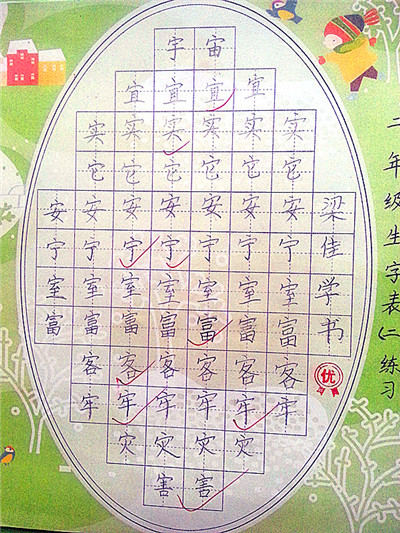 宇宙
宜宜宜宜
实实实实实实
它它它它它它
安安安安安安安梁
宁宁宁宁宁宁宁佳
室室室室室室室学
富富富富富富富书
客客客客客客
优
牢牢牢牢牢牢
灾灾灾灾
害害
二年级生字表(二练习